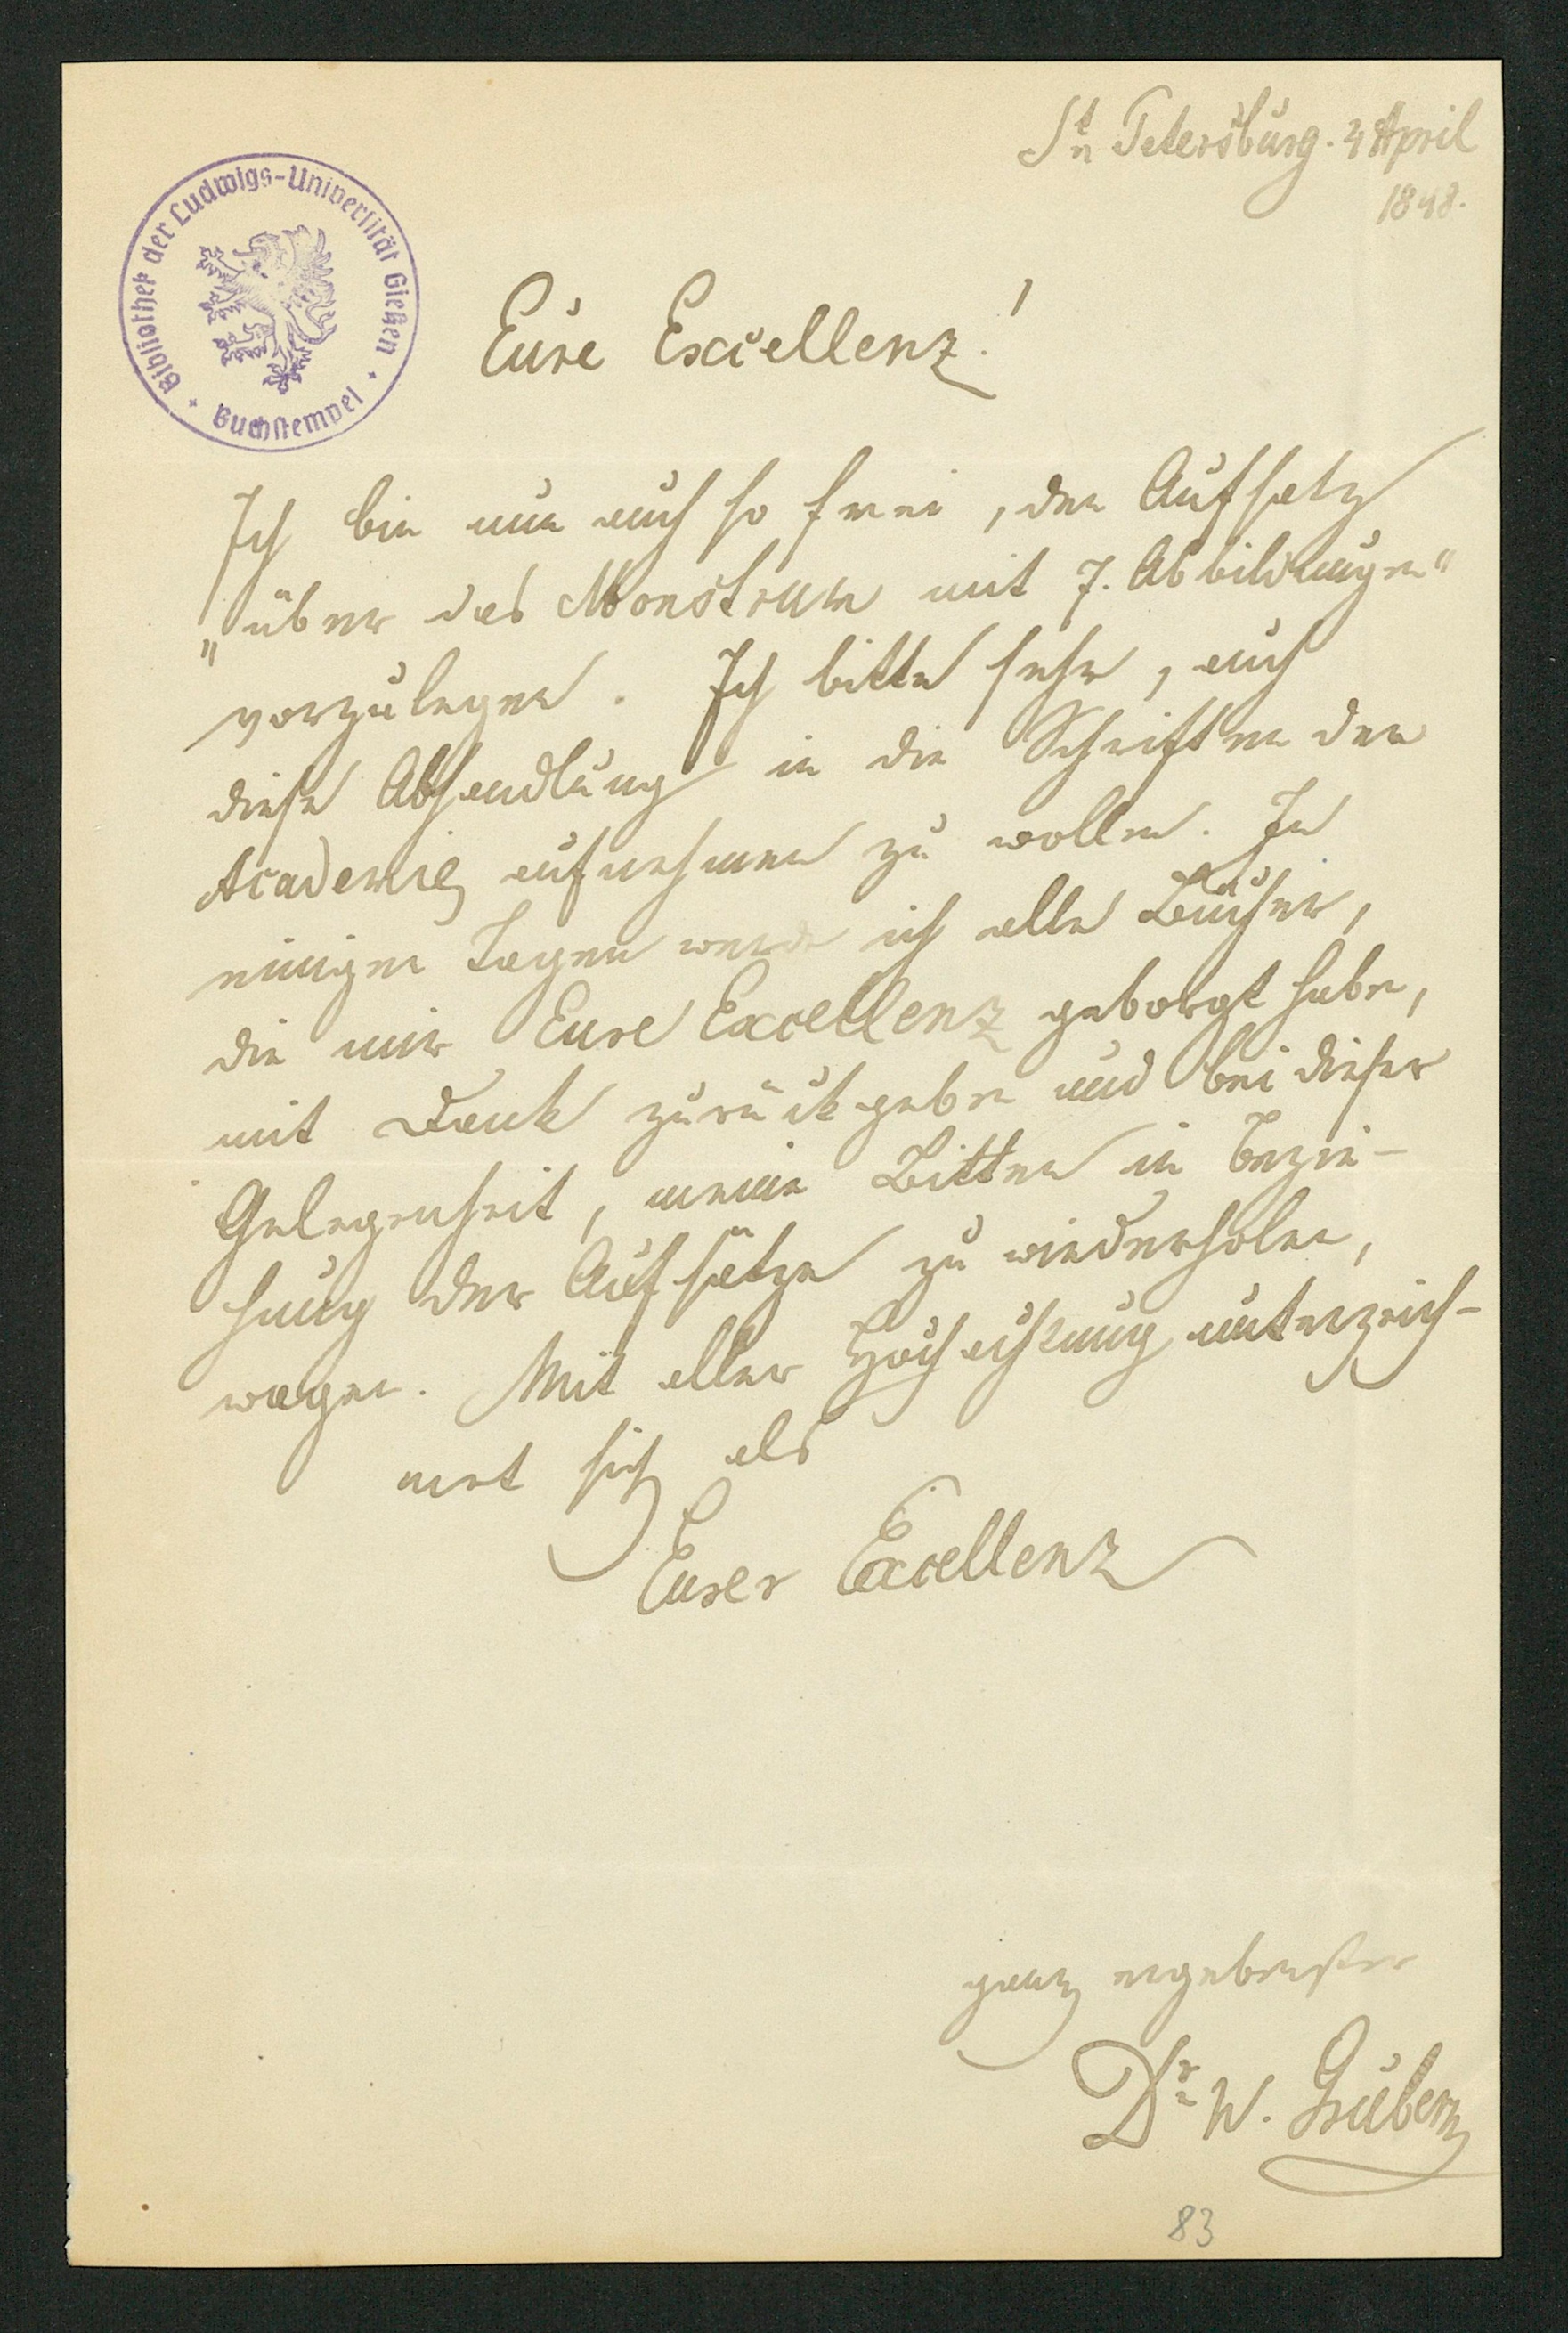 St. Petersburg. 4 April
1848.
Bibliothek der Ludwigs-Universität Gießen
Buchstempel
Eure Excellenz!
Ich bin nun auch so frei, den Aufsatz
„über das Monstrum mit 7. Abbildungen“
vorzulegen. Ich bitte sehr, auch
diese Abhandlung in die Schriften der
Academie aufnehmen zu wollen. In
einigen Tagen werde ich alle Bücher,
die mir Eure Excellenz geborgt haben,
mit Dank zurückgeben und bei dieser
Gelegenheit, meine Bitten in Bezie-
hung der Aufsätze zu wiederholen,
wagen. Mit aller Hochachtung unterzeich-
net sich als
Eurer Excellenz
ganz ergebenster
Dr. W. Gruber
83